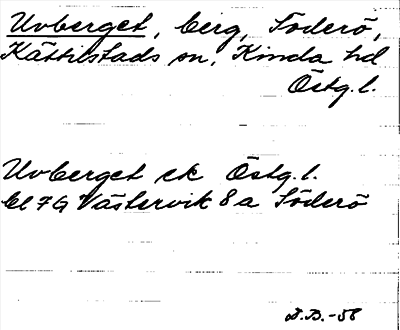 Uvberget, berg, Söderö,
Kättilstads sn, Kinda hd
Östg.l.
Uvberget ek Östg.l.
bl 7G Västervik 8a Söderö
D.B.-58